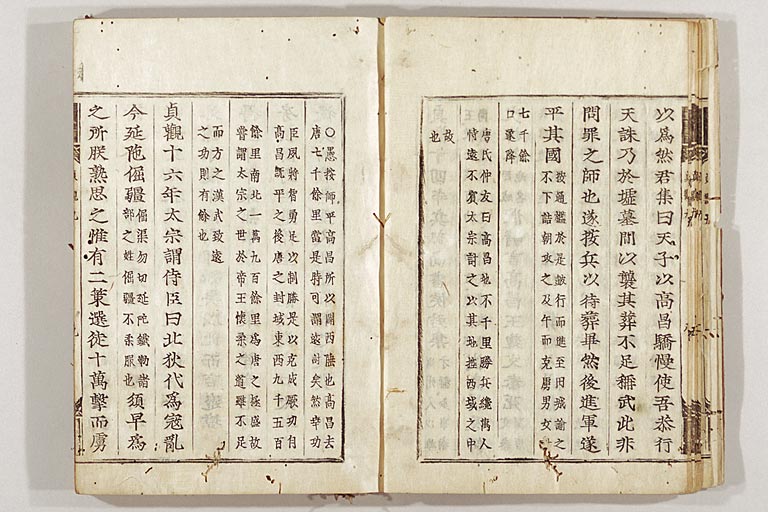 以爲然君集曰天子以高昌驕慢使吾恭行
天誅乃於墟墓間以襲其葬不足稱武此非
問罪之師也遂按兵以待葬畢然後進軍遂
平其國
按通鑑於是鼓行而進至田城諭之
不下詰朝攻之及午而克虜男女
七千餘
口遂降
唐氏仲友曰高昌地不千里勝兵纔萬人
恃遠不賓太宗討之以其地搤西域之中
故
也
○愚按師平高昌所以開西陲也高昌去
唐七千餘里當是時可謂遠討矣然幸功
臣夙將智勇足以制勝是以克成厥功自
高昌旣平之後唐之封域東西九千五百
餘里南北一萬九百餘里爲唐之極盛故
嘗謂太宗之世於帝王懷柔之道雖不足
而方之漢武致遠
之功則有餘也
貞觀十六年太宗謂侍臣曰北狄代爲寇亂
今延陁倔彊
倔渠勿切延陁鐵勒諸
部之姓倔彊不柔服也
須早爲
之所朕熟思之惟有二策選徒十萬擊而虜